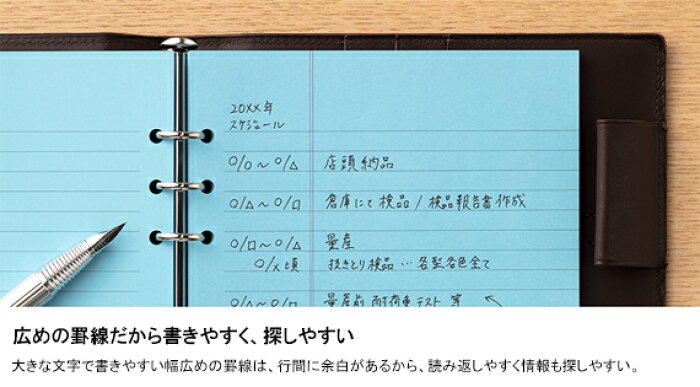 20XX年
スケジュール
○/○～○/△ 店頭納品
○/△～○/□ 倉庫にて検品/検品報告書作成
○/□～○/△ 量産
○/×頃 抜きとり検品…各型各色全て
○/△～○/□ 量産前耐荷重テスト 等
広めの罫線だから書きやすく、探しやすい
大きな文字で書きやすい幅広めの罫線は、行間に余白があるから、読み返しやすく情報も探しやすい。